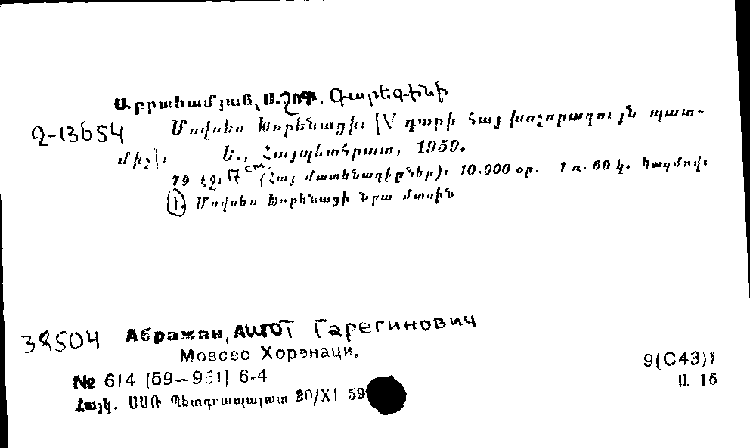 Աբրահամյան, Աշոտ Գարեգինի
2-13654 Մովսես Խորենացի IV դարի հայ խոշորագույն պատ-
միչ։ Ե., Հայպետհրատ, 1959.
79 էջ։ 17 cm (Հայ մատենագիրներ)։ 10.000 օր. 1 ռ. 60 կ. կազմով։
1. Մովսես Խորենացի նրա մասին
38504 Абражан, Ашот Гарегинович
Мовсес Хорэнаци.
9(С43)1
№ 614 [59—951] 6-4
Ա. 16
Հայկ. ՍՍՌ Պետգրապալատ 20/XI 59